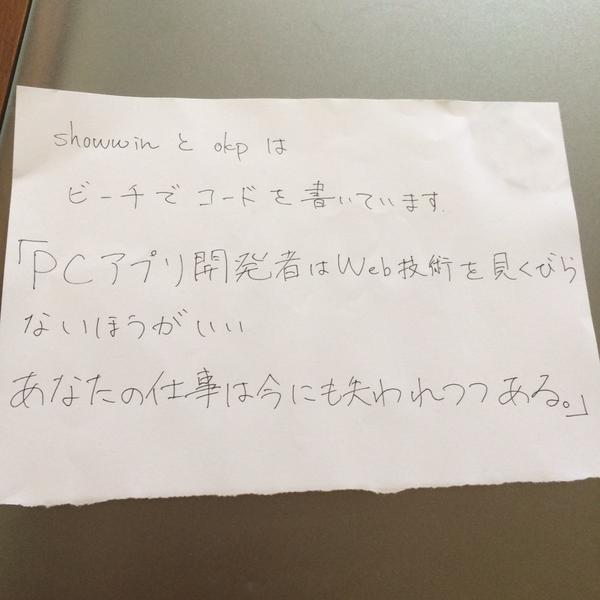 showwin と okp は
ビーチで コードを 書いています.
「PCアプリ開発者はWeb技術を見くびら
ないほうがいい
あなたの仕事は今にも失われつつある。」